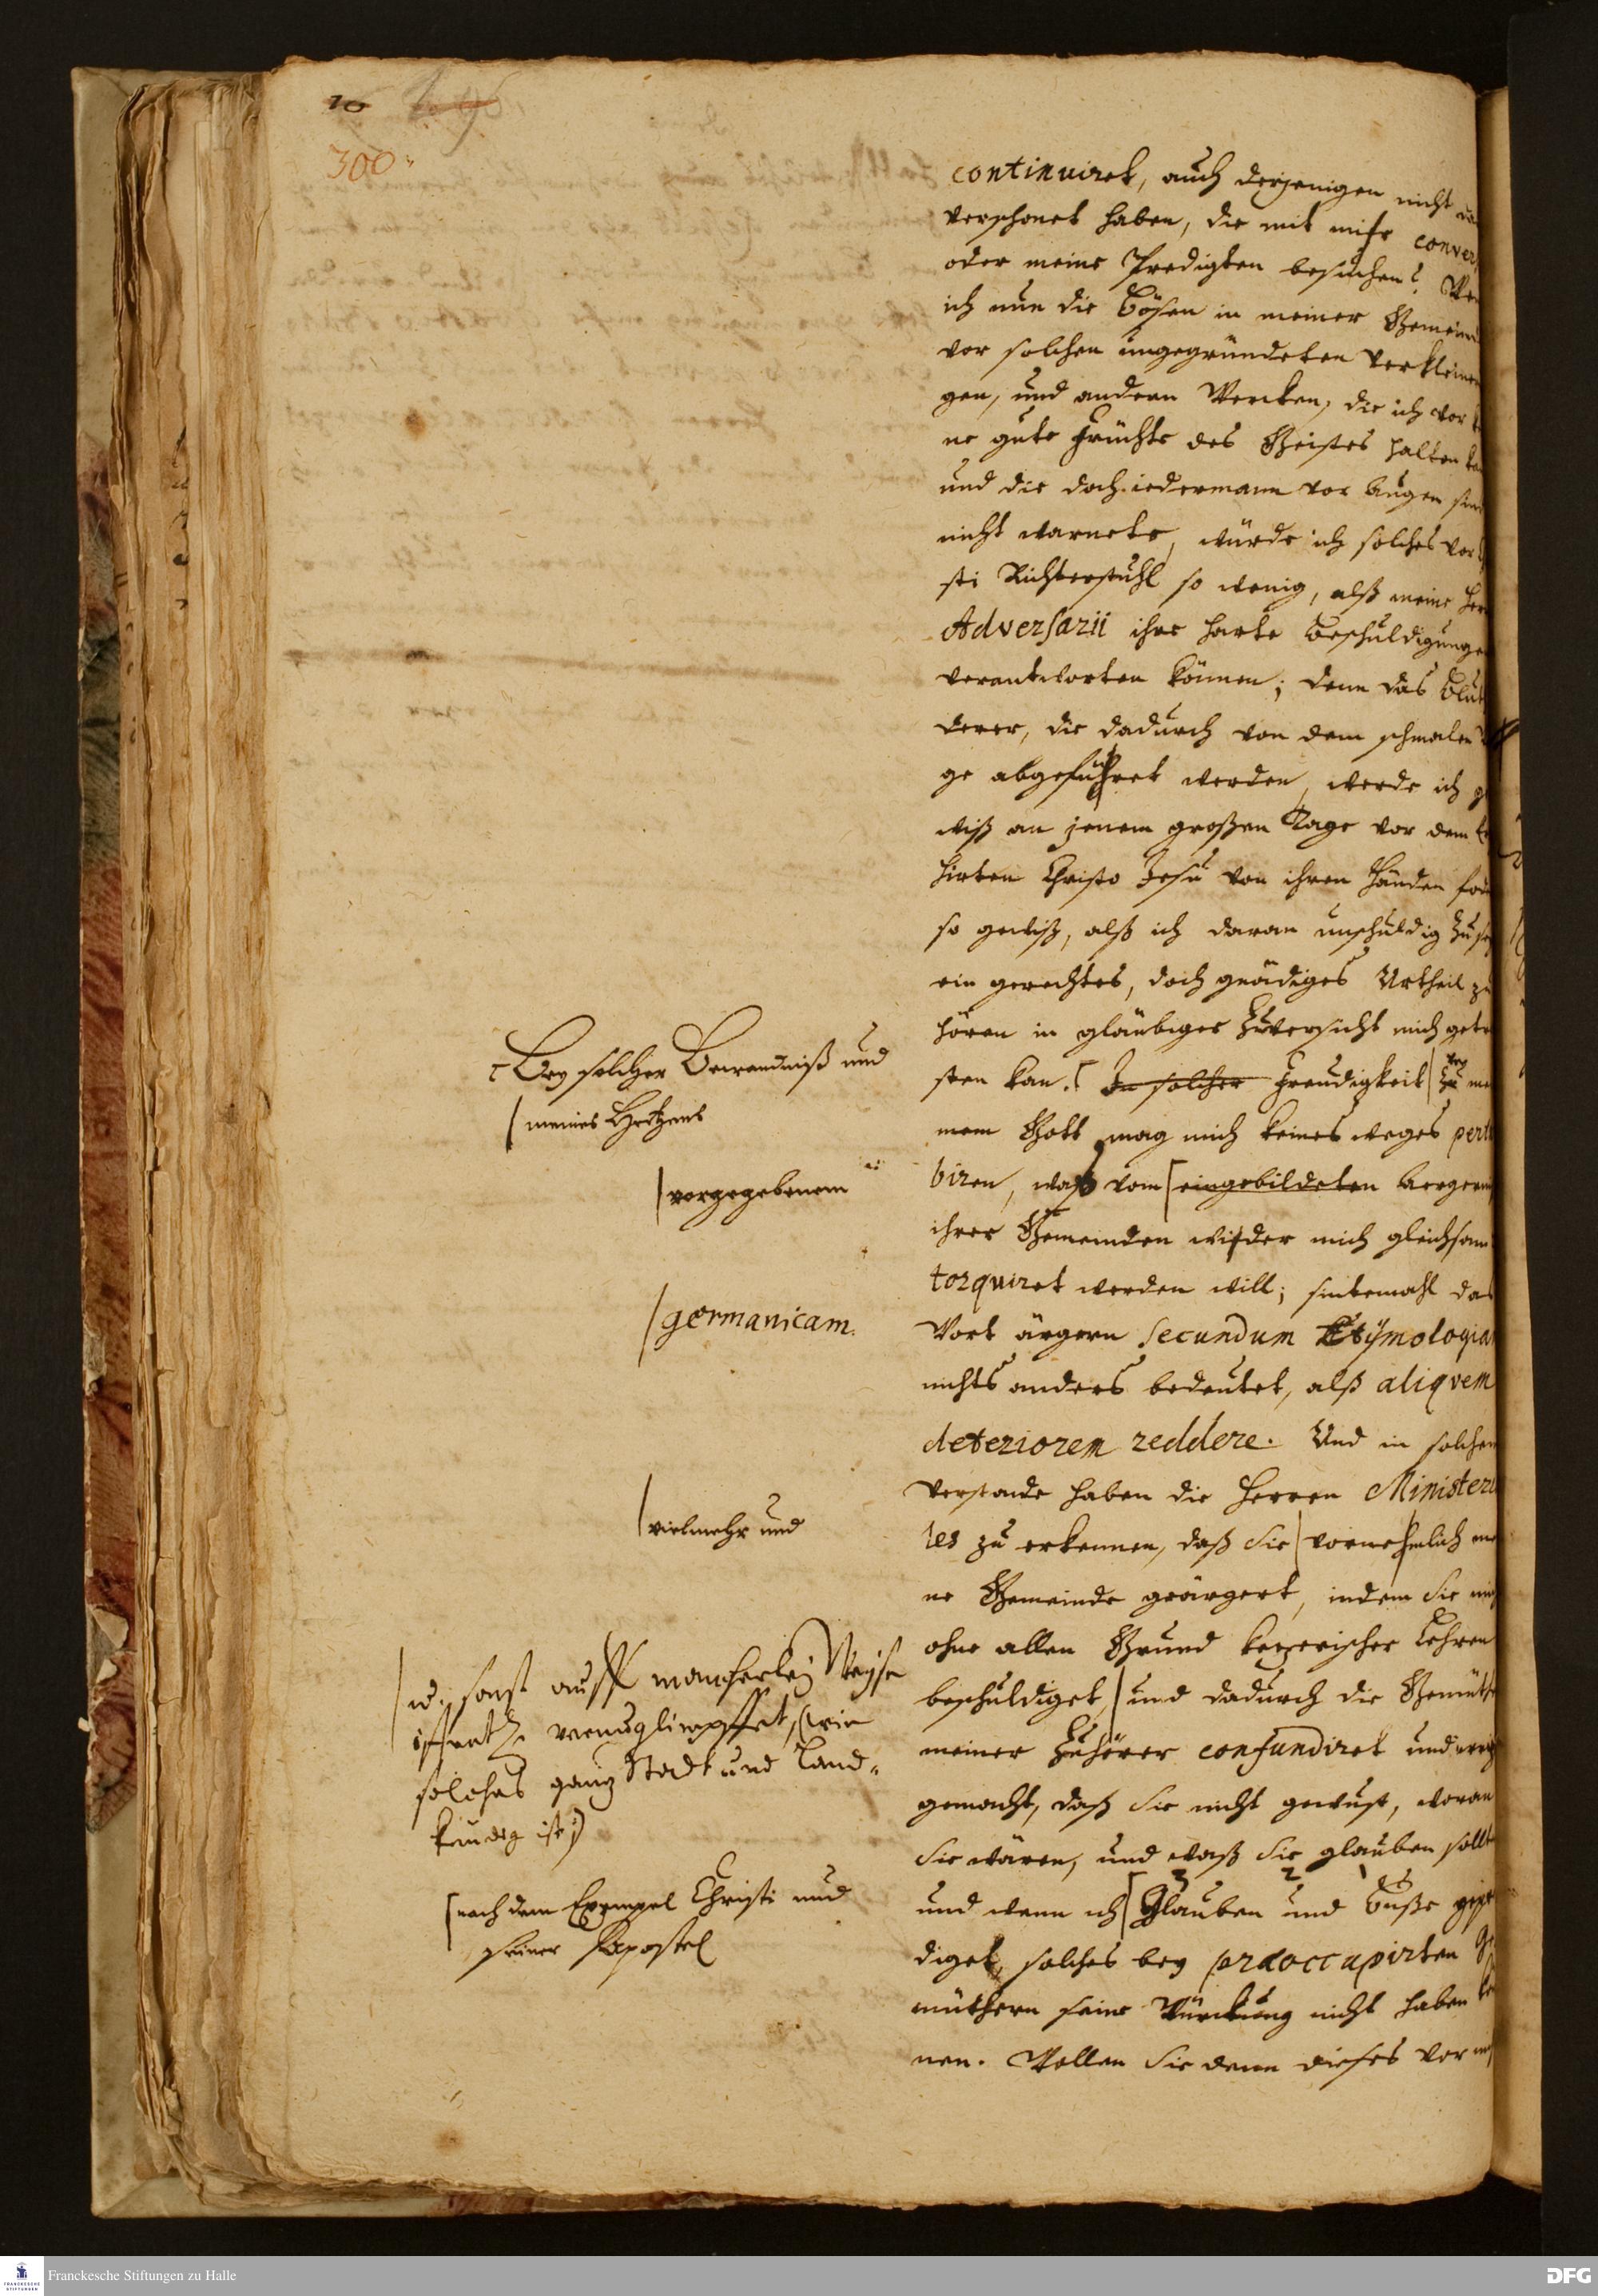 10
300.
continuiret, auch derjenigen nicht
verschonet haben, die mit mihr conver
oder meine Predigten besuchen? We
ich nun die Bösen in meiner Gemein
vor solchen ungegründeten verkleiner
gen, und andern Wercken, die ich vor k
ne gute Früchte des Geistes halten ka
und die doch iedermann vor Augen sin
nicht warnete, würde ich solches vor
sti Richterstuhl so wenig, alß meine Her
Adversarii ihre harte Beschuldigunge
verantworten können; denn das Blut
derer, die dadurch von dem schmalen
ge abgeführet werden, werde ich g
wiß an jenem großen Tage vor dem
Hirten Christo Jesu von ihren Händen fod
so gewiß, alß ich daran unschuldig zu se
ein gerechtes, doch gnädiges Urtheil zu
hören in gläubiger Zuversicht mich getr
sten kan. In solcher Freudigkeit zu me
nem Gott mag mich keines weges pertu
biren, waß vom eingebildeten Aergern
ihrer Gemeinden wieder mich gleichsam
torquiret werden will; sintemahl das
Wort ärgern secundum Etÿmologia
nichts anders bedeutet, alß aliqvem
deteriorem reddere. Und in solchem
Verstande haben die Herren Ministeria
les zu erkennen, daß Sie vornehmlich me
ne Gemeinde geärgert, indem Sie mich
ohne allen Grund ketzerischer Lehren
beschuldiget, und dadurch die Gemüth
meiner Zuhörer confundiret und irrig
gemacht, daß Sie nicht gewust, woran
Sie wären, und waß Sie glauben sollt
und wenn ich Glauben und Buße gepre
diget, solches bey præoccupirten Ge
müthern seine Würckung nicht haben kö
nen. Wollen Sie denn dieses vor
Bey solcher Bewandniß und
meines Hertzens
vorgegebenem
germanicam.
vielmehr und
u. sonst auff mancherley Weise
verunglimpffet, (wie
solches gantz Stadt und Land-
kündig ist;)
nach dem Exempel Christi und
seiner Apostel
Franckesche Stiftungen zu Halle
DFG
FRANCKESCHE
STIFTUNGEN